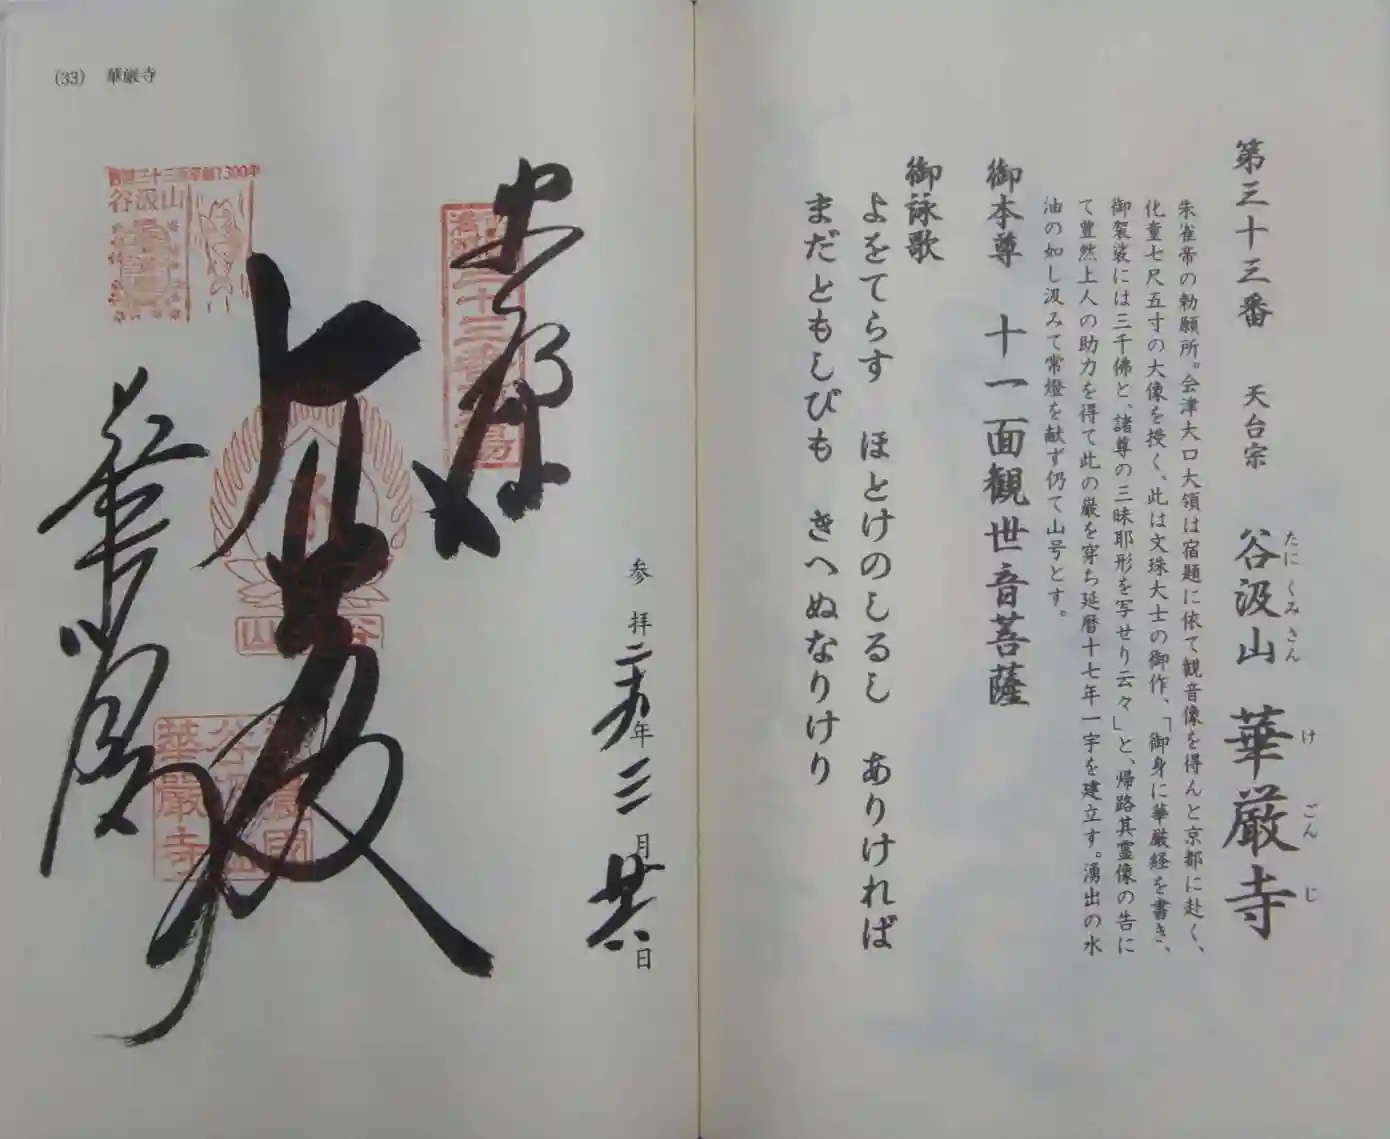 第三十三番 天台宗 谷汲山 華厳寺
たにくみさん けごんじ
朱雀帝の勅願所。会津大口大領は宿題に依て観音像を得んと京都に赴く、
化童七尺五寸の大像を授く、此は文珠大士の御作、「御身に華厳経を書き、
御袈裟には三千佛と、諸尊の三昧耶形を写せり云々」と、帰路其霊像の告に
て豊然上人の助力を得て此の巌を穿ち延暦十七年一宇を建立す。湧出の水
油の如し汲みて常燈を献ず仍て山号とす。
御本尊 十一面観世音菩薩
御詠歌
よをてらす ほとけのしるし ありければ
まだともしびも きへぬなりけり
(33) 華厳寺
参拝 年三月 日
奉拝
華厳寺
三十三番
谷汲山
谷汲山
華嚴寺